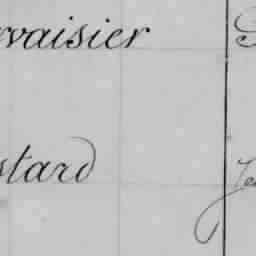 rvaisier
stard Je